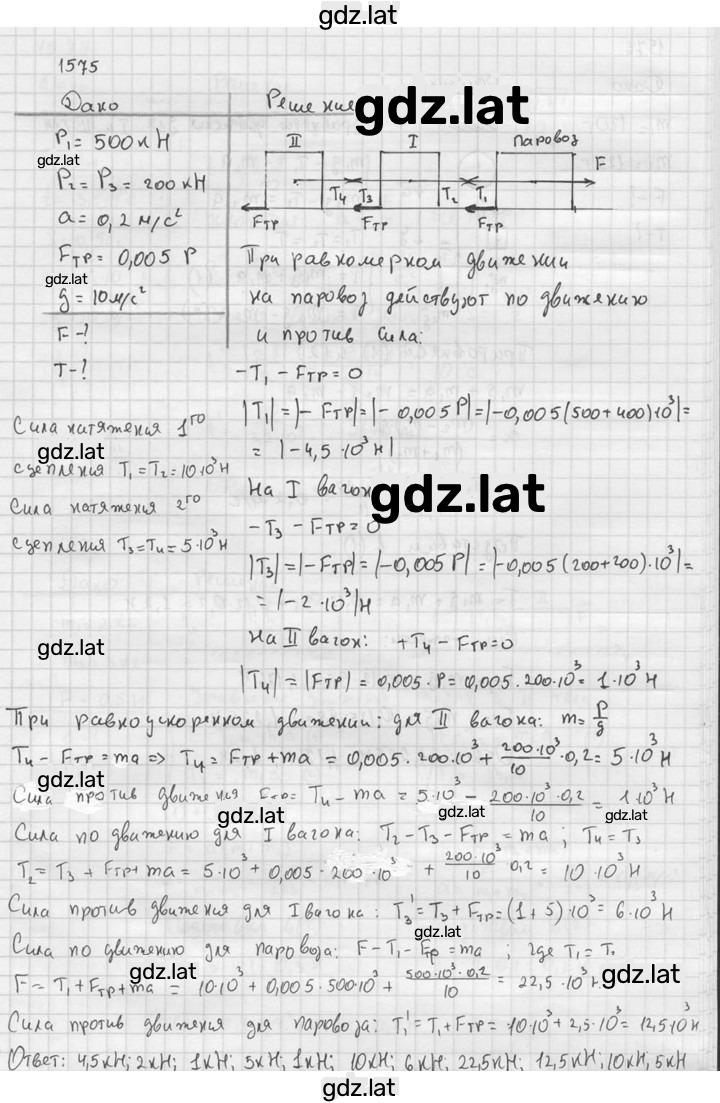 gdz.lat
1575
Дано
Решение
gdz.lat
P₁ = 500 кН
gdz.lat
P₂ = P₃ = 200 кН
a = 0,2 м/с²
Fтр = 0,005 P
gdz.lat
g = 10 м/с²
F - ?
T - ?
II I паровоз
F
T₄ T₃ T₂ T₁
Fтр Fтр Fтр
При равномерном движении
на паровоз действуют по движению
и против сила:
-T₁ - Fтр = 0
|T₁| = |- Fтр| = |- 0,005 P| = |-0,005 (500 + 400)·10³| =
= |-4,5·10³ Н|
Сила натяжения 1го
gdz.lat
сцепления T₁ = T₂ = 10·10³ Н
Сила натяжения 2го
сцепления T₃ = T₄ = 5·10³ Н
На I вагон
gdz.lat
-T₃ - Fтр = 0
|T₃| = |-Fтр| = |-0,005 P| = |-0,005 (200+200)·10³| =
= |-2·10³| Н
gdz.lat
На II вагон: +T₄ - Fтр = 0
gdz.lat
|T₄| = |Fтр| = 0,005·P = 0,005·200·10³ = 1·10³ Н
При равноускоренном движении: для II вагона: m = P/g
T₄ - Fтр = ma => T₄ = Fтр + ma = 0,005·200·10³ + 200·10³/10 ·0,2 = 5·10³ Н
gdz.lat
Сила против движения Fтр = T₄ - ma = 5·10³ - 200·10³·0,2/10 = 1·10³ Н
gdz.lat gdz.lat
Сила по движению для I вагона: T₂ - T₃ - Fтр = ma ; T₄ = T₃
T₂ = T₃ + Fтр + ma = 5·10³ + 0,005·200·10³ + 200·10³/10 0,2 = 10·10³ Н
Сила против движения для I вагона: T₃' = T₃ + Fтр = (1 + 5)·10³ = 6·10³ Н
Сила по движению для паровоза: F - T₁ - Fтр = ma ; где T₁ = T₂
gdz.lat gdz.lat
F = T₁ + Fтр + ma = 10·10³ + 0,005·500·10³ + 500·10³·0,2/10 = 22,5·10³ Н
Сила против движения для паровоза: T₁' = T₁ + Fтр = 10·10³ + 2,5·10³ = 12,5·10³ Н
Ответ: 4,5 кН; 2 кН; 1 кН; 5 кН; 1 кН; 10 кН; 6 кН; 22,5 кН; 12,5 кН; 10 кН, 5 кН
gdz.lat